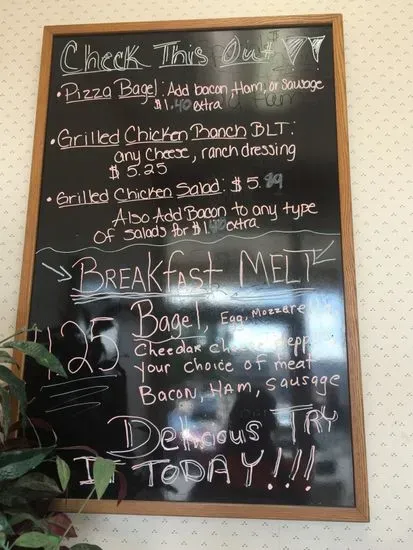 Check This Out
• Pizza Bagel: Add bacon, Ham, or Sausage
$1.40 extra
• Grilled Chicken Ranch BLT:
any cheese, ranch dressing
$5.25
• Grilled Chicken Salad: $5.89
Also Add Bacon to any type
of salads for $1.40 extra
BREAKfast MELT
Bagel, Egg, Mozzare
Cheedar
your choice of meat
BACON, HAM, Sausage
Delicious TRY
IT TODAY!!!